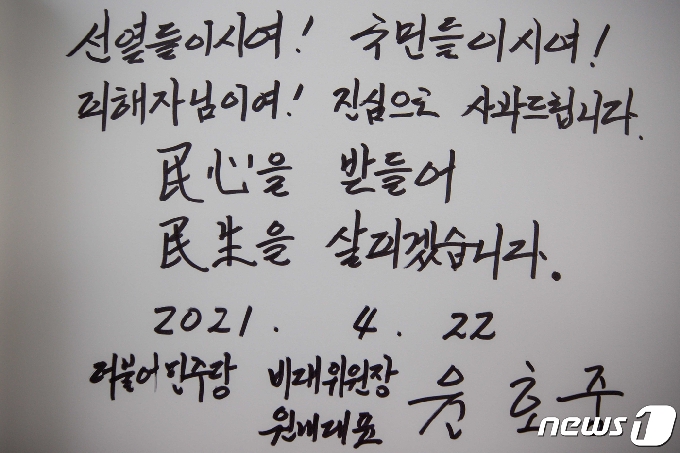 선열들이시여! 국민들이시여!
피해자님이여! 진심으로 사과드립니다.
民心을 받들어
民生을 살피겠습니다.
2021. 4. 22
더불어민주당 비대위원장 윤 호 중
원내대표
news1